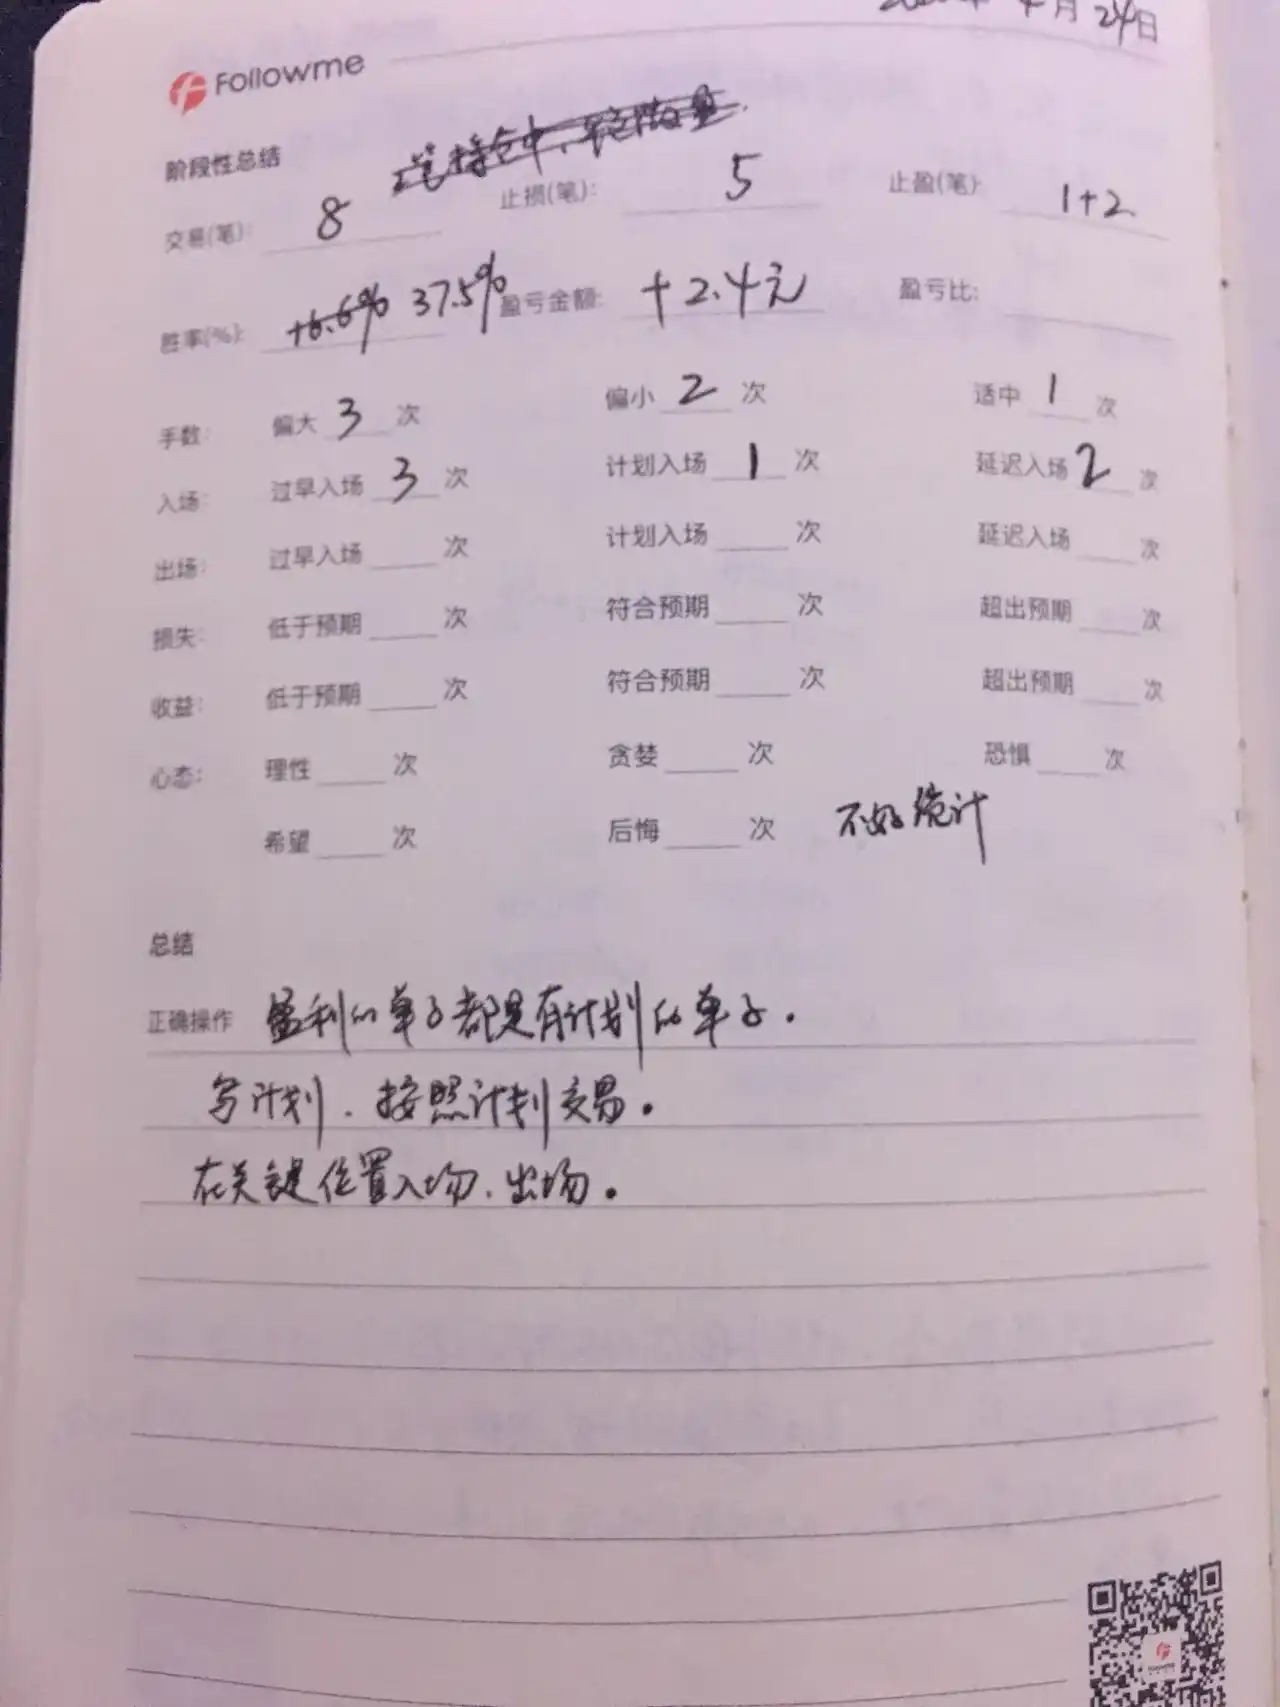 4月24日
Followme
阶段性总结
交易(笔): 8 止损(笔): 5 止盈(笔): 1+2
胜率(%): +6.6% 37.5% 盈亏金额: +2.4元 盈亏比:
手数: 偏大 3 次 偏小 2 次 适中 1 次
入场: 过早入场 3 次 计划入场 1 次 延迟入场 2 次
出场: 过早入场 次 计划入场 次 延迟入场 次
损失: 低于预期 次 符合预期 次 超出预期 次
收益: 低于预期 次 符合预期 次 超出预期 次
心态: 理性 次 贪婪 次 恐惧 次
希望 次 后悔 次 不好统计
总结
正确操作 盈利的单子都是有计划的单子.
写计划. 按照计划交易.
在关键位置入场. 出场.